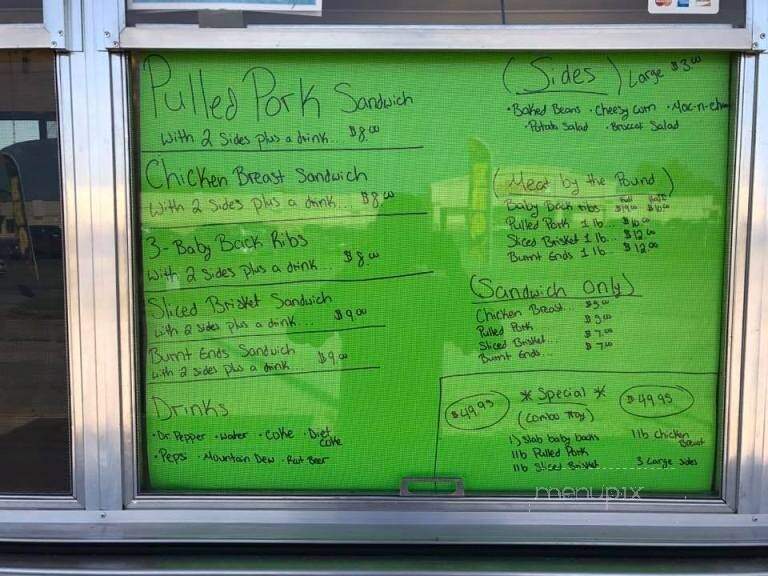 Pulled Pork Sandwich
with 2 sides plus a drink... $8.00
Chicken Breast Sandwich
with 2 sides plus a drink... $8.00
3-Baby Back Ribs
with 2 sides plus a drink... $8.00
Sliced Brisket Sandwich
with 2 sides plus a drink... $9.00
Burnt Ends Sandwich
with 2 sides plus a drink... $9.00
Drinks
• Dr. Pepper • water • Coke • Diet Coke
• Pepsi • Mountain Dew • Root Beer
(Sides) Large $3.00
• Baked Beans • Cheesy Corn • Mac-n-chee
• Potato Salad • Broccoli Salad
(Meat by the Pound)
Full Half
Baby Back ribs $19.00 $10.00
Pulled Pork 1 lb... $10.00
Sliced Brisket 1 lb... $12.00
Burnt Ends 1 lb... $12.00
(Sandwich Only)
Chicken Breast... $5.00
Pulled Pork $5.00
Sliced Brisket... $7.00
Burnt Ends... $7.00
$49.95 * Special * $49.95
(Combo Tray)
1) slab baby backs 1 lb Chicken Breast
1 lb Pulled Pork
1 lb Sliced Brisket 3 Large sides
menupix